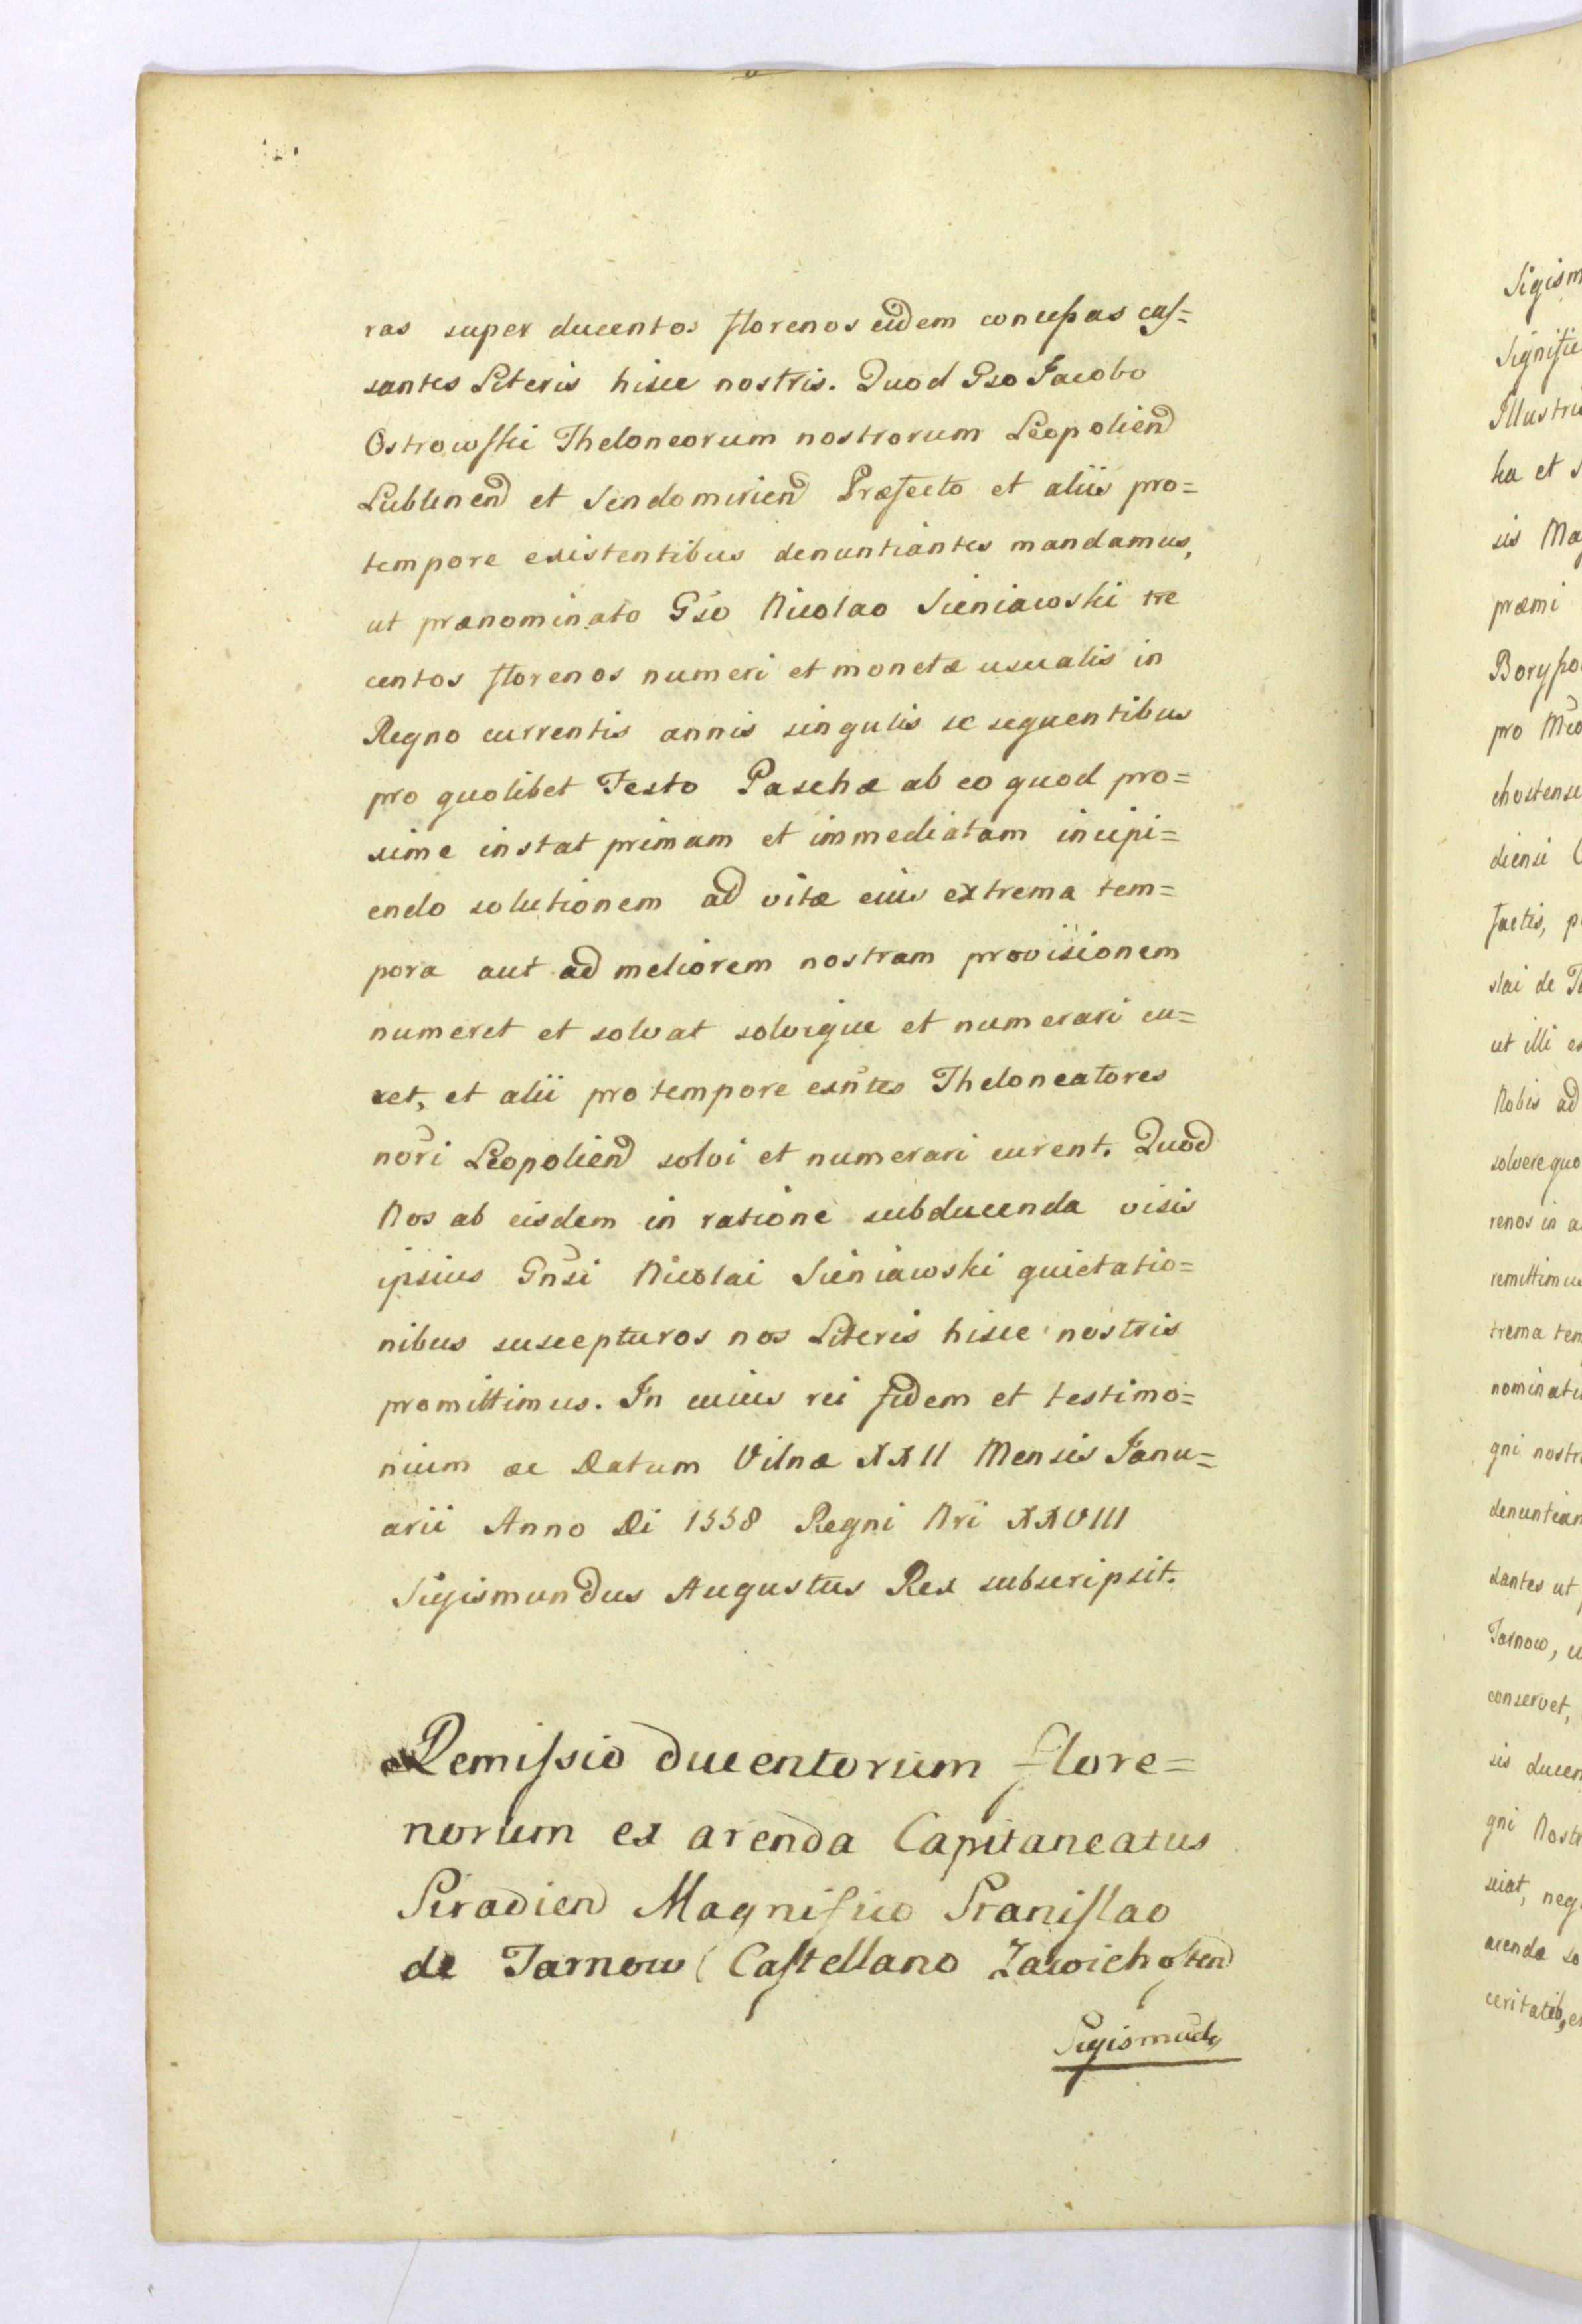 ras super ducentos florenos eidem concessas cas=
santes Literis hisce nostris. Quod Gso Jacobo
Ostrowski Theloneorum nostrorum Leopoliend
Lublinend et Sendomiriend Præfecto et aliis pro=
tempore existentibus denuntiantes mandamus,
ut prænominato Gso Nicolao Sieniawski tre
centos florenos numeri et monetæ usualis in
Regno currentis annis singulis se sequentibus
pro quolibet Festo Paschæ ab eo quod pro=
xime instat primam et immediatam incipi=
endo solutionem ad vitæ eius extrema tem=
pora aut ad meliorem nostram provisionem
numeret et solvat solvique et numerari cu=
ret, et alii pro tempore exntes Theloneatores
nori Leopoliend solvi et numerari curent. Quod
Nos ab eisdem in ratione subducenda visis
ipsius Gnsi Nicolai Sieniawski quietatio=
nibus suscepturos nos Literis hisce nostris
promittimus. In cuius rei fidem et testimo=
nium ac Datum Vilnæ XXII Mensis Janu=
arii Anno Di 1558 Regni Nri XXVIII
Sigismundus Augustus Rex subscripsit.
Remissio ducentorum flore=
norum ex arenda Capitaneatus
Siradiend Magnifico Stanislao
de Tarnow Castellano Zawichostend
Sigismudq
Sigism
Signific
Illustri
ha et s
sis Mag
præmi
Boryspo
pro Mco
chostense
diensi C
factis, p
slai de T
ut illi e
Nobis ad
solvere quo
renos in a
remittimus
trema tem
nominati
gni nostri
denuntian
dantes ut
Tarnow, u
conservet,
sis ducen
gni Nostr
sciat, neg
arendæ so
ceritatib,e